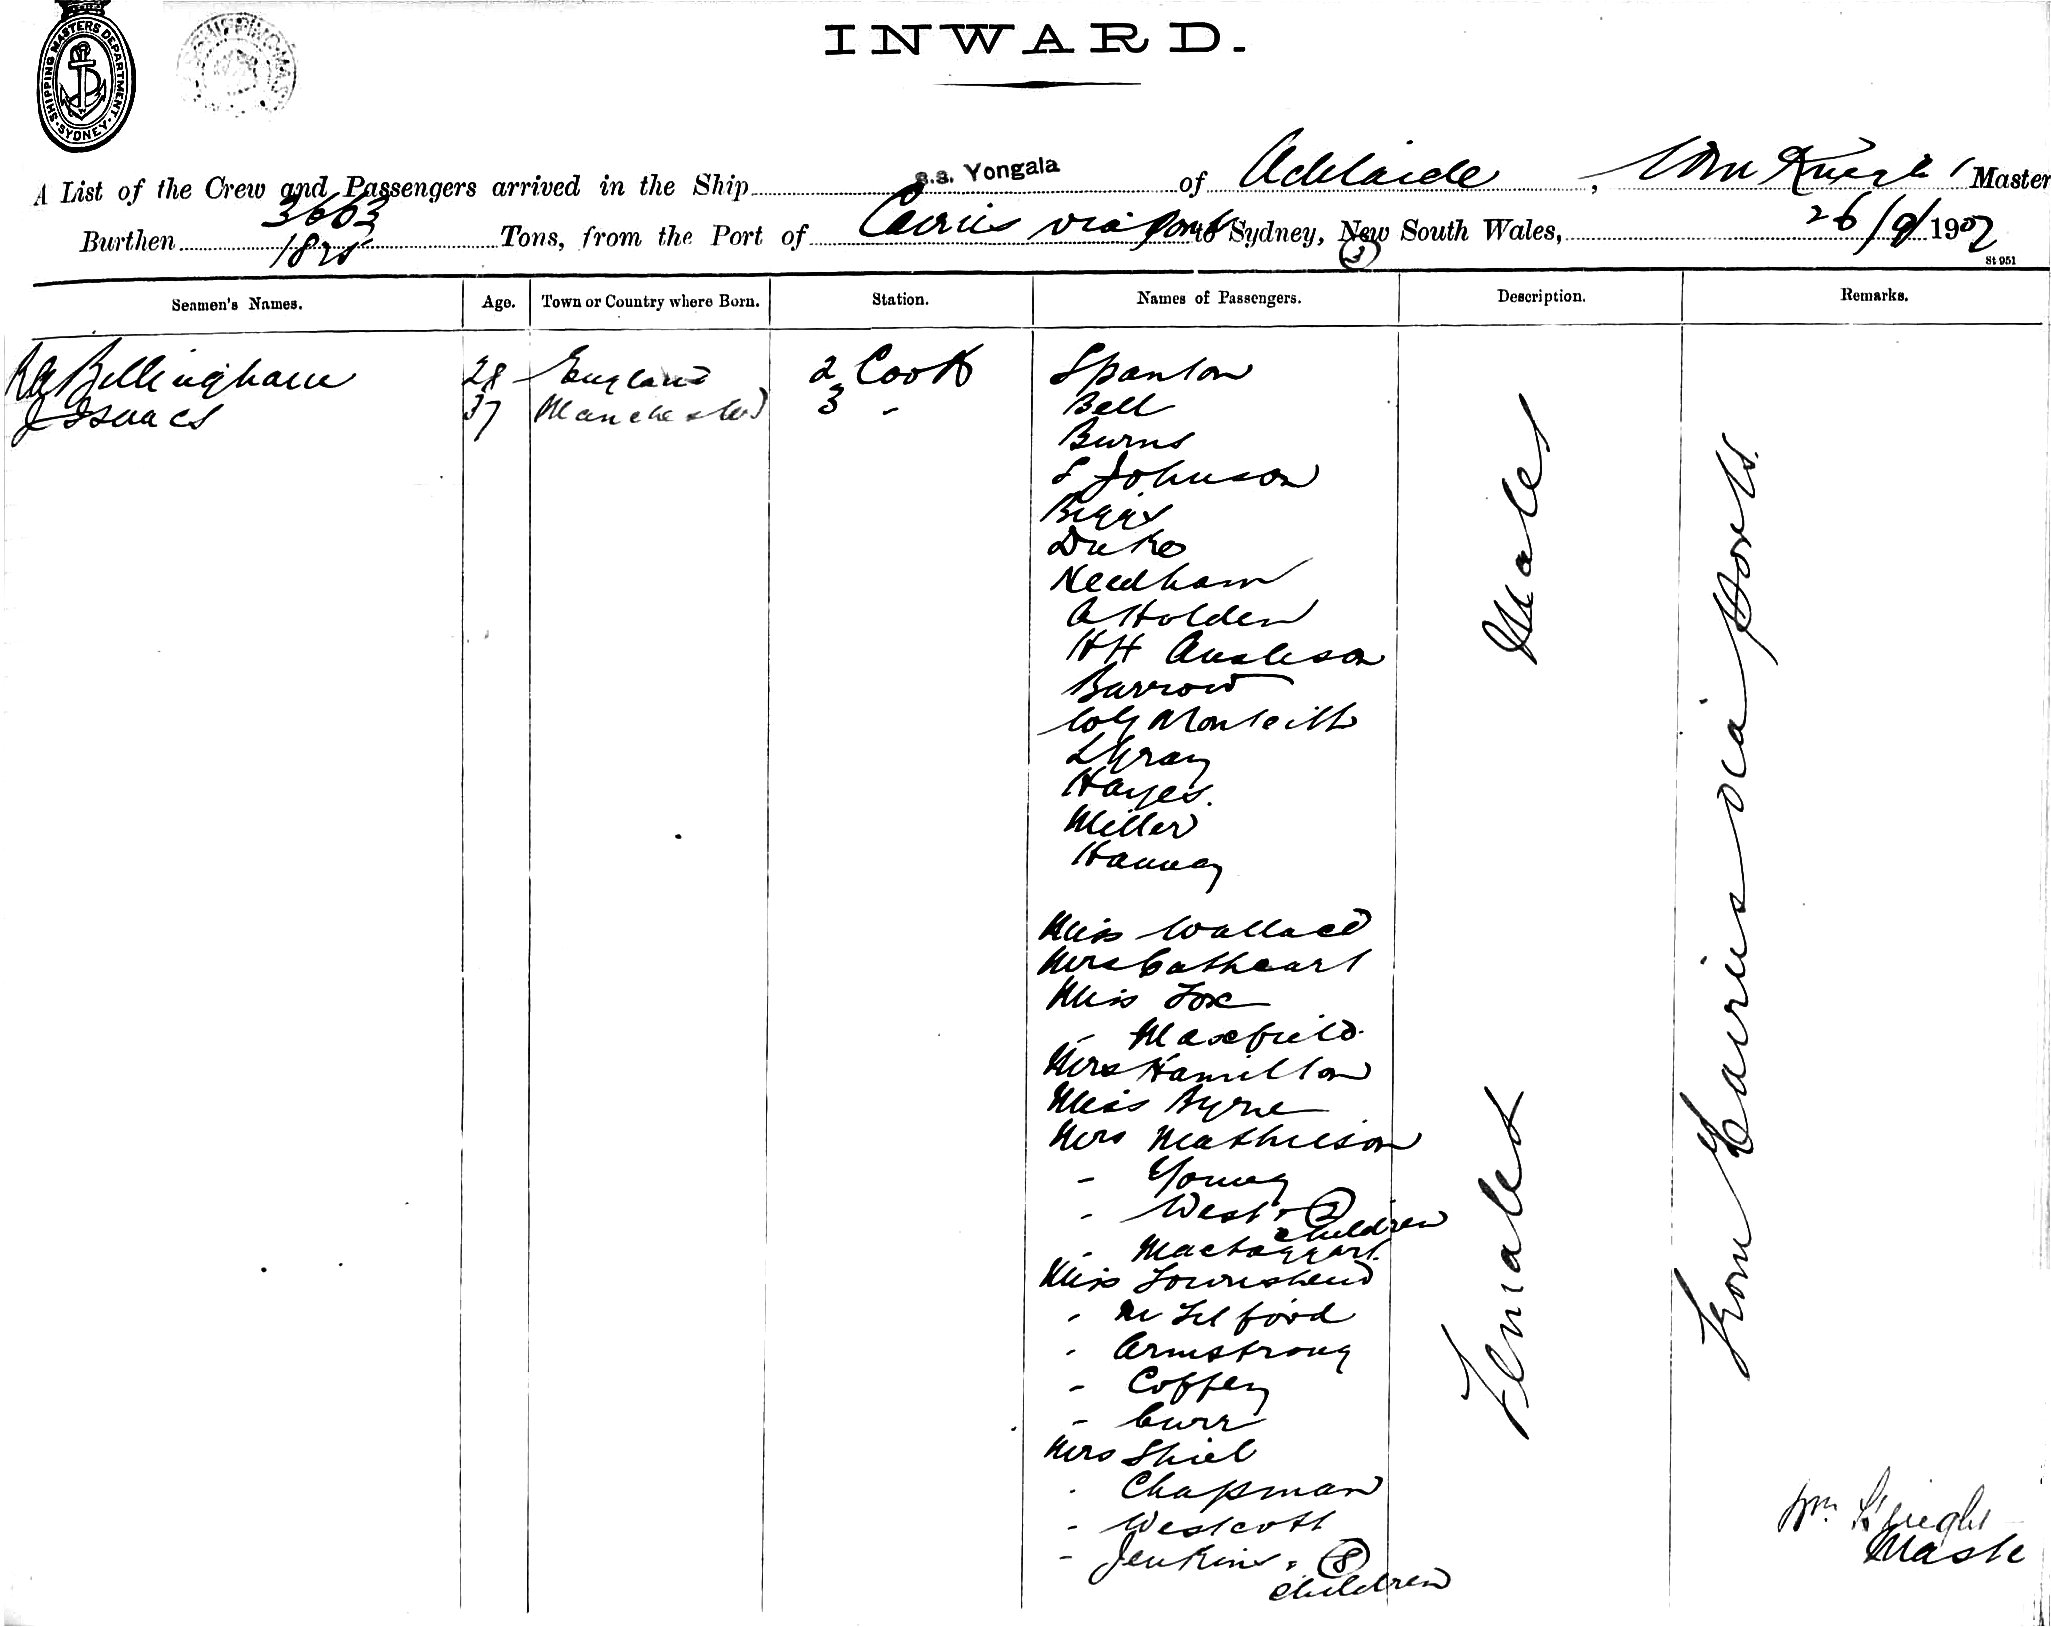 INWARD.
SHIPPING MASTERS DEPARTMENT
SYDNEY
A List of the Crew and Passengers arrived in the Ship s.s. Yongala of Adelaide, Wm Knight Master
Burthen 3603 1825 Tons, from the Port of Cairns via ports to Sydney, New South Wales, 26/9/1907
(3)
St 951
Seamen's Names. Age. Town or Country where Born. Station. Names of Passengers. Description. Remarks.
Bellingham 28 England 2 Cook Spanton
J Isaacs 37 Manchester 3 - Bell
Burns
S Johnson
Biggs
Duke
Needham
A Holden
HH
Barrow
Monteith
L Gray
Hayes.
Miller
Hannay
Males
Miss Wallace
Mrs Cathcart
Miss Fox
- Maxfield
Mrs Hamilton
Miss Byrne
Mrs Mathieson
- Young
- West + (2)
children
- Mactaggart
Miss Townshend
- M Telford
- Armstrong
- Coffey
- Curr
Mrs Shiel
- Chapman
- Westcott
- Jenkins + (8)
children
Females
From Cairns via ports.
Wm Knight
Master